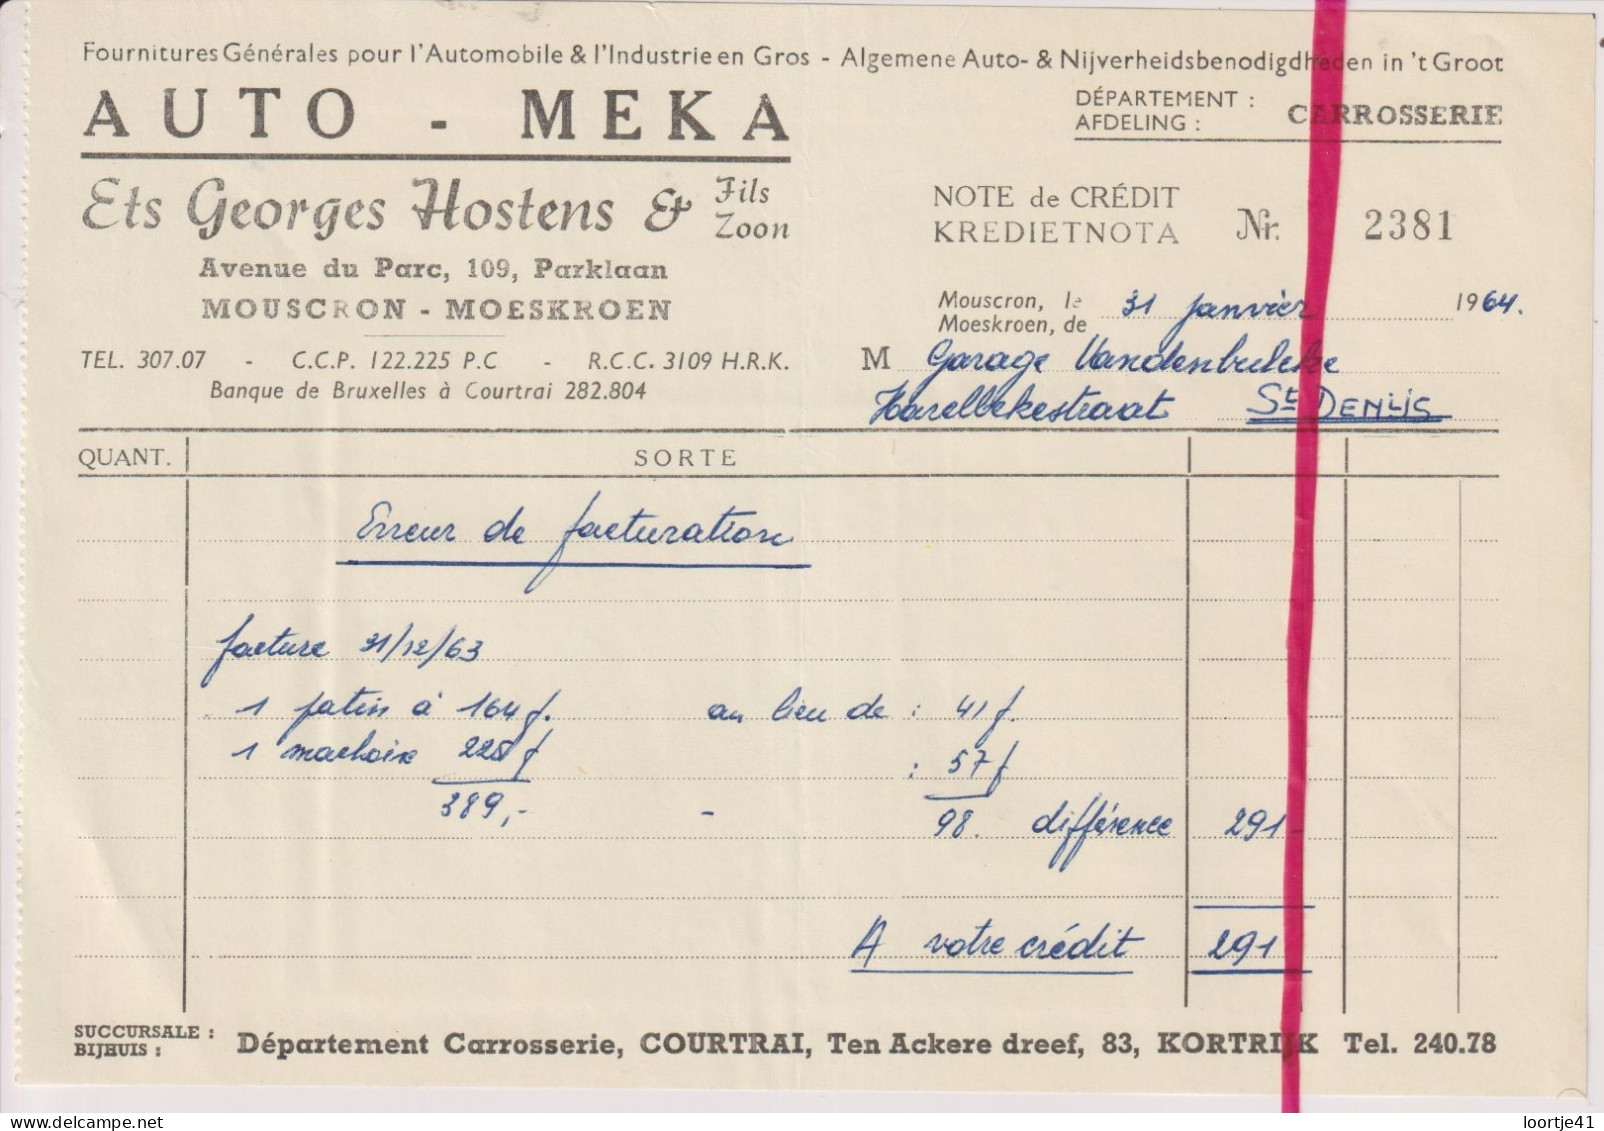 Fournitures Générales pour l'Automobile & l'Industrie en Gros - Algemene Auto- & Nijverheidsbenodigdheden in 't Groot
AUTO - MEKA
DÉPARTEMENT :
AFDELING :
CARROSSERIE
Ets Georges Hostens & Fils
Zoon
NOTE de CRÉDIT
KREDIETNOTA
Nr. 2381
Avenue du Parc, 109, Parklaan
MOUSCRON - MOESKROEN
Mouscron, le
Moeskroen, de
31 janvier 1964.
TEL. 307.07 - C.C.P. 122.225 P.C - R.C.C. 3109 H.R.K.
Banque de Bruxelles à Courtrai 282.804
M Garage Vandenbulcke
Harelbekestraat St DENIJS
QUANT. SORTE
Erreur de facturation
facture 31/12/63
1 patin à 164 f. au lieu de : 41 f.
1 machoire 225 f : 57 f
389,- - 98. différence 291-
A votre crédit 291
SUCCURSALE :
BIJHUIS :
Département Carrosserie, COURTRAI, Ten Ackere dreef, 83, KORTRIJK Tel. 240.78
loortje41